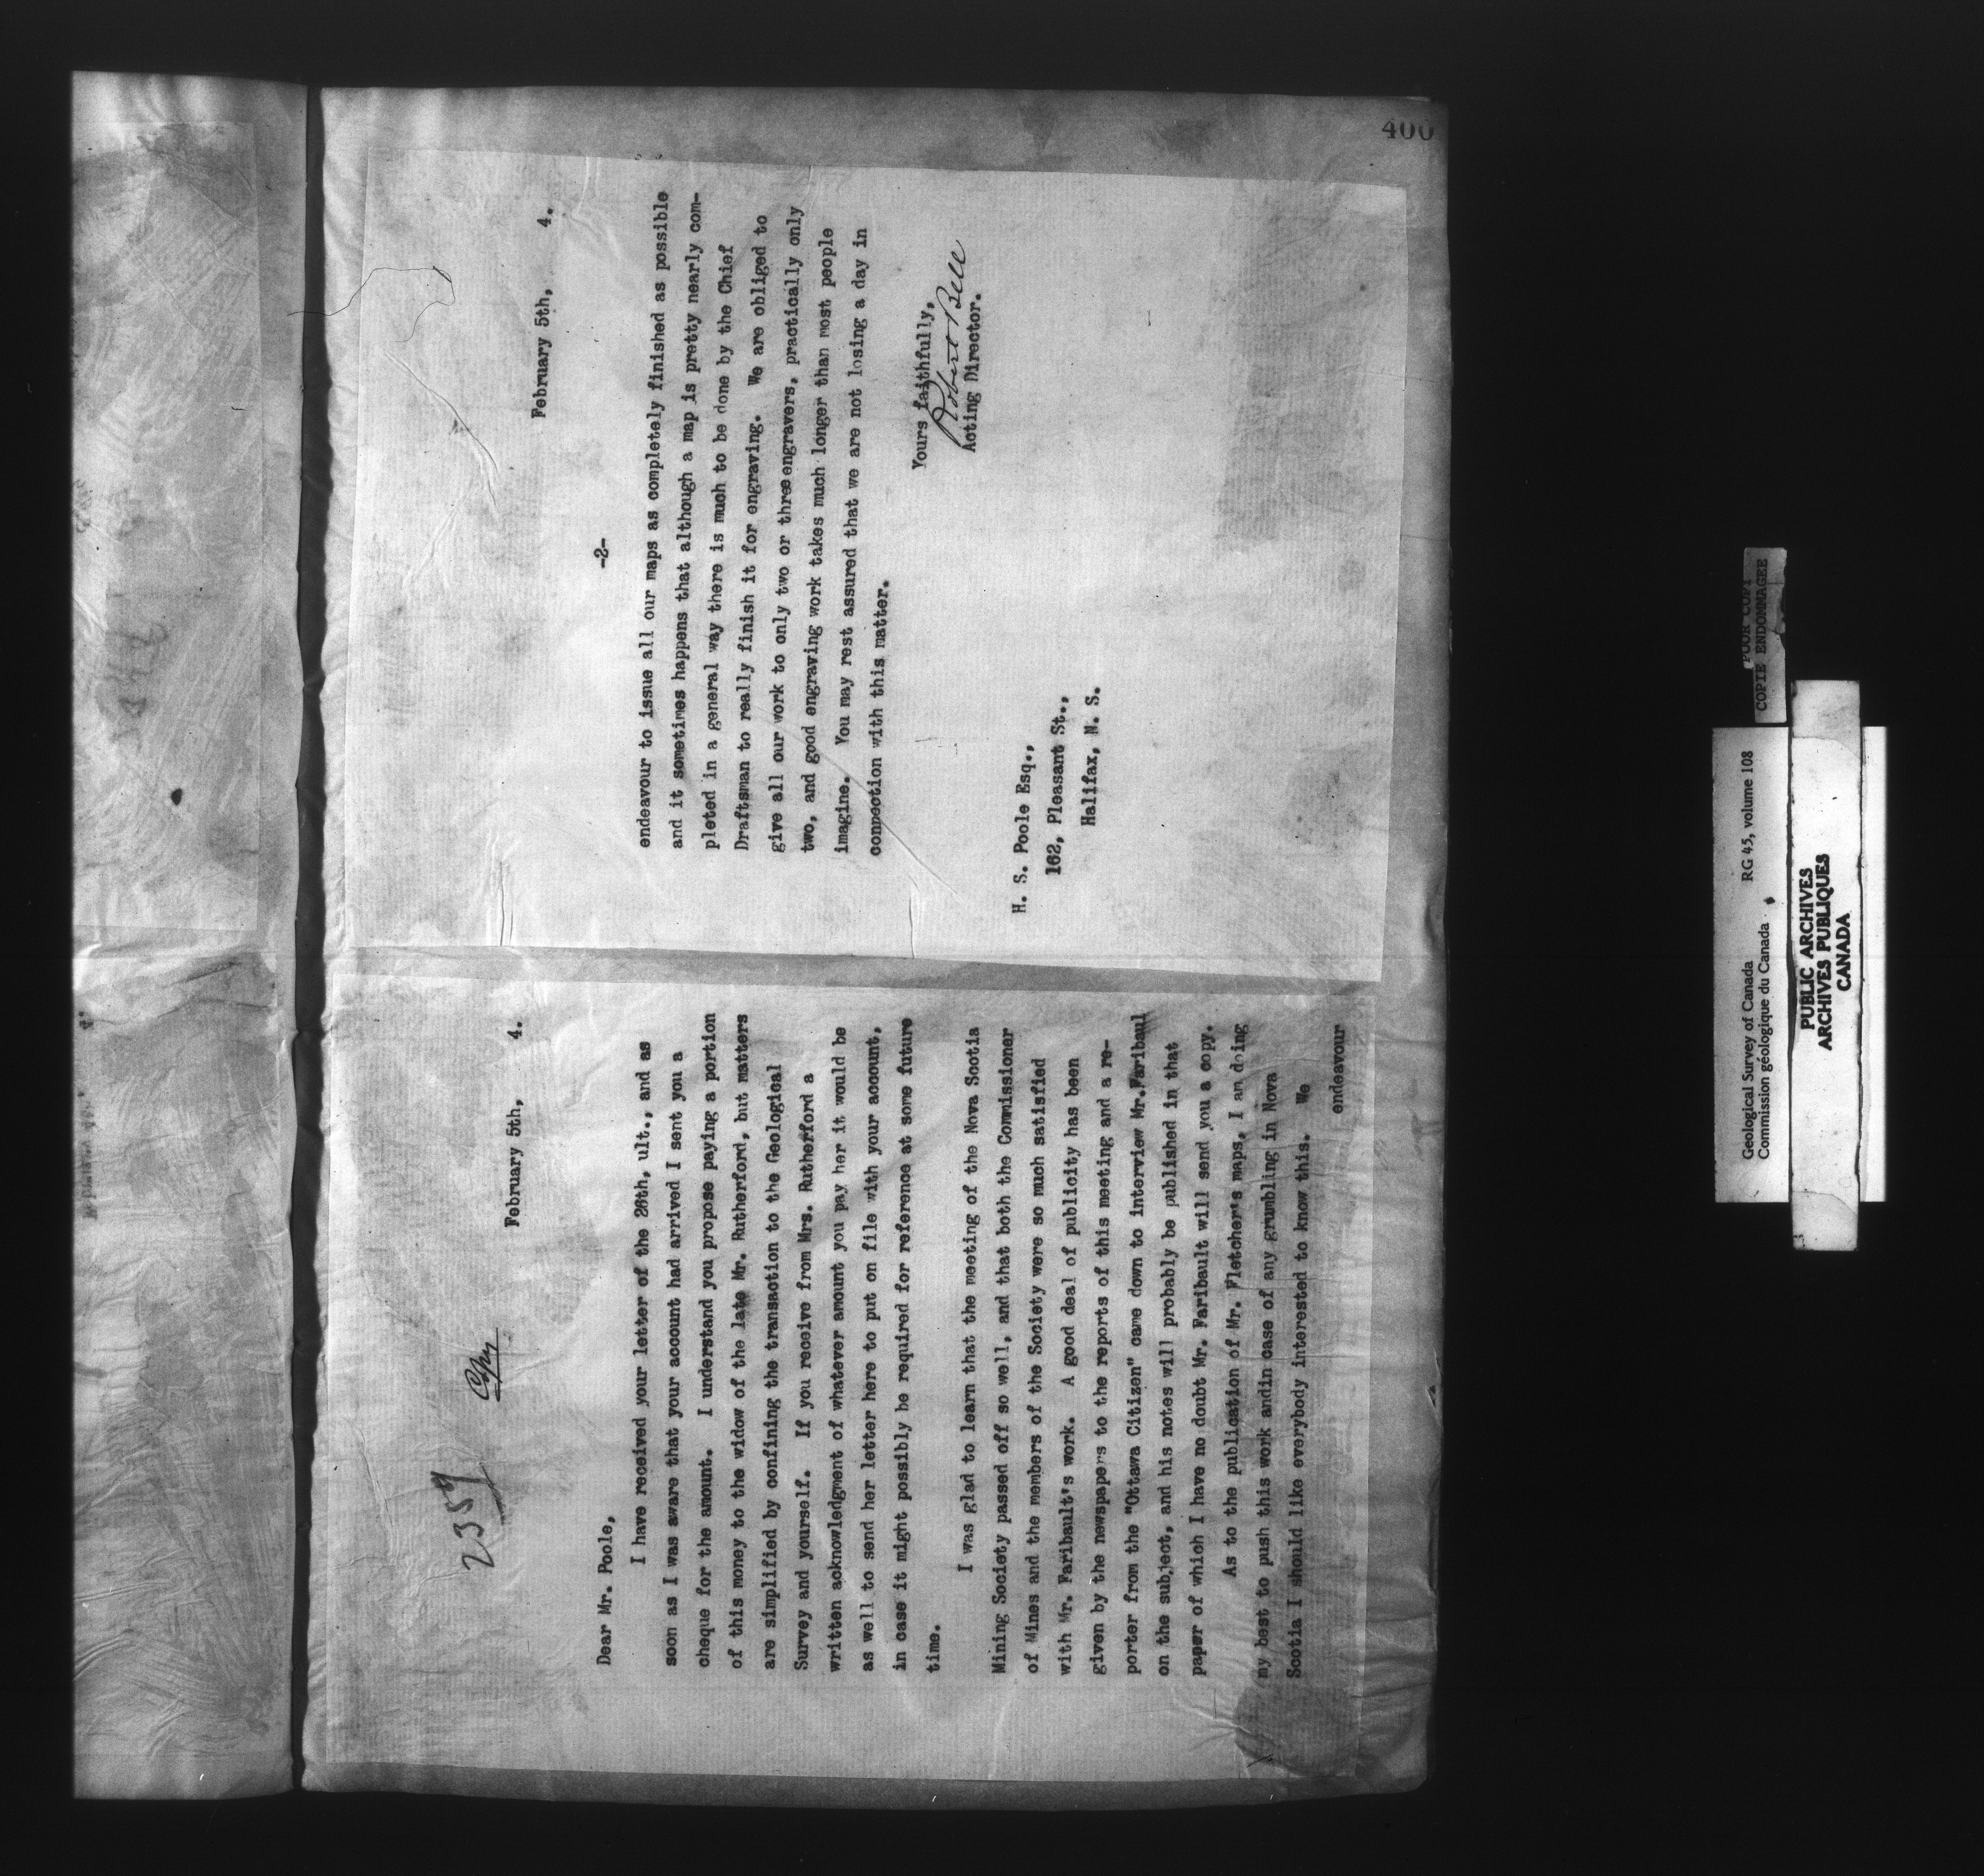 400
2359 Copy
February 5th, 4.
Dear Mr. Poole,
I have received your letter of the 26th, ult., and as
soon as I was aware that your account had arrived I sent you a
cheque for the amount. I understand you propose paying a portion
of this money to the widow of the late Mr. Rutherford, but matters
are simplified by confining the transaction to the Geological
Survey and yourself. If you receive from Mrs. Rutherford a
written acknowledgment of whatever amount you pay her it would be
as well to send her letter here to put on file with your account,
in case it might possibly be required for reference at some future
time.
I was glad to learn that the meeting of the Nova Scotia
Mining Society passed off so well, and that both the Commissioner
of Mines and the members of the Society were so much satisfied
with Mr. Faribault's work. A good deal of publicity has been
given by the newspapers to the reports of this meeting and a re-
porter from the "Ottawa Citizen" came down to interview Mr.Faribaul
on the subject, and his notes will probably be published in that
paper of which I have no doubt Mr. Faribault will send you a copy.
As to the publication of Mr. Fletcher's maps, I am doing
my best to push this work andin case of any grumbling in Nova
Scotia I should like everybody interested to know this. We
endeavour
February 5th, 4.
-2-
endeavour to issue all our maps as completely finished as possible
and it sometimes happens that although a map is pretty nearly com-
pleted in a general way there is much to be done by the Chief
Draftsman to really finish it for engraving. We are obliged to
give all our work to only two or three engravers, practically only
two, and good engraving work takes much longer than most people
imagine. You may rest assured that we are not losing a day in
connection with this matter.
Yours faithfully,
Robert Bell
Acting Director.
H. S. Poole Esq.,
162, Pleasant St.,
Halifax, N. S.
Geological Survey of Canada RG 45, volume 108
Commission géologique du Canada
POOR COPY
COPIE ENDOMMAGEE
PUBLIC ARCHIVES
ARCHIVES PUBLIQUES
CANADA